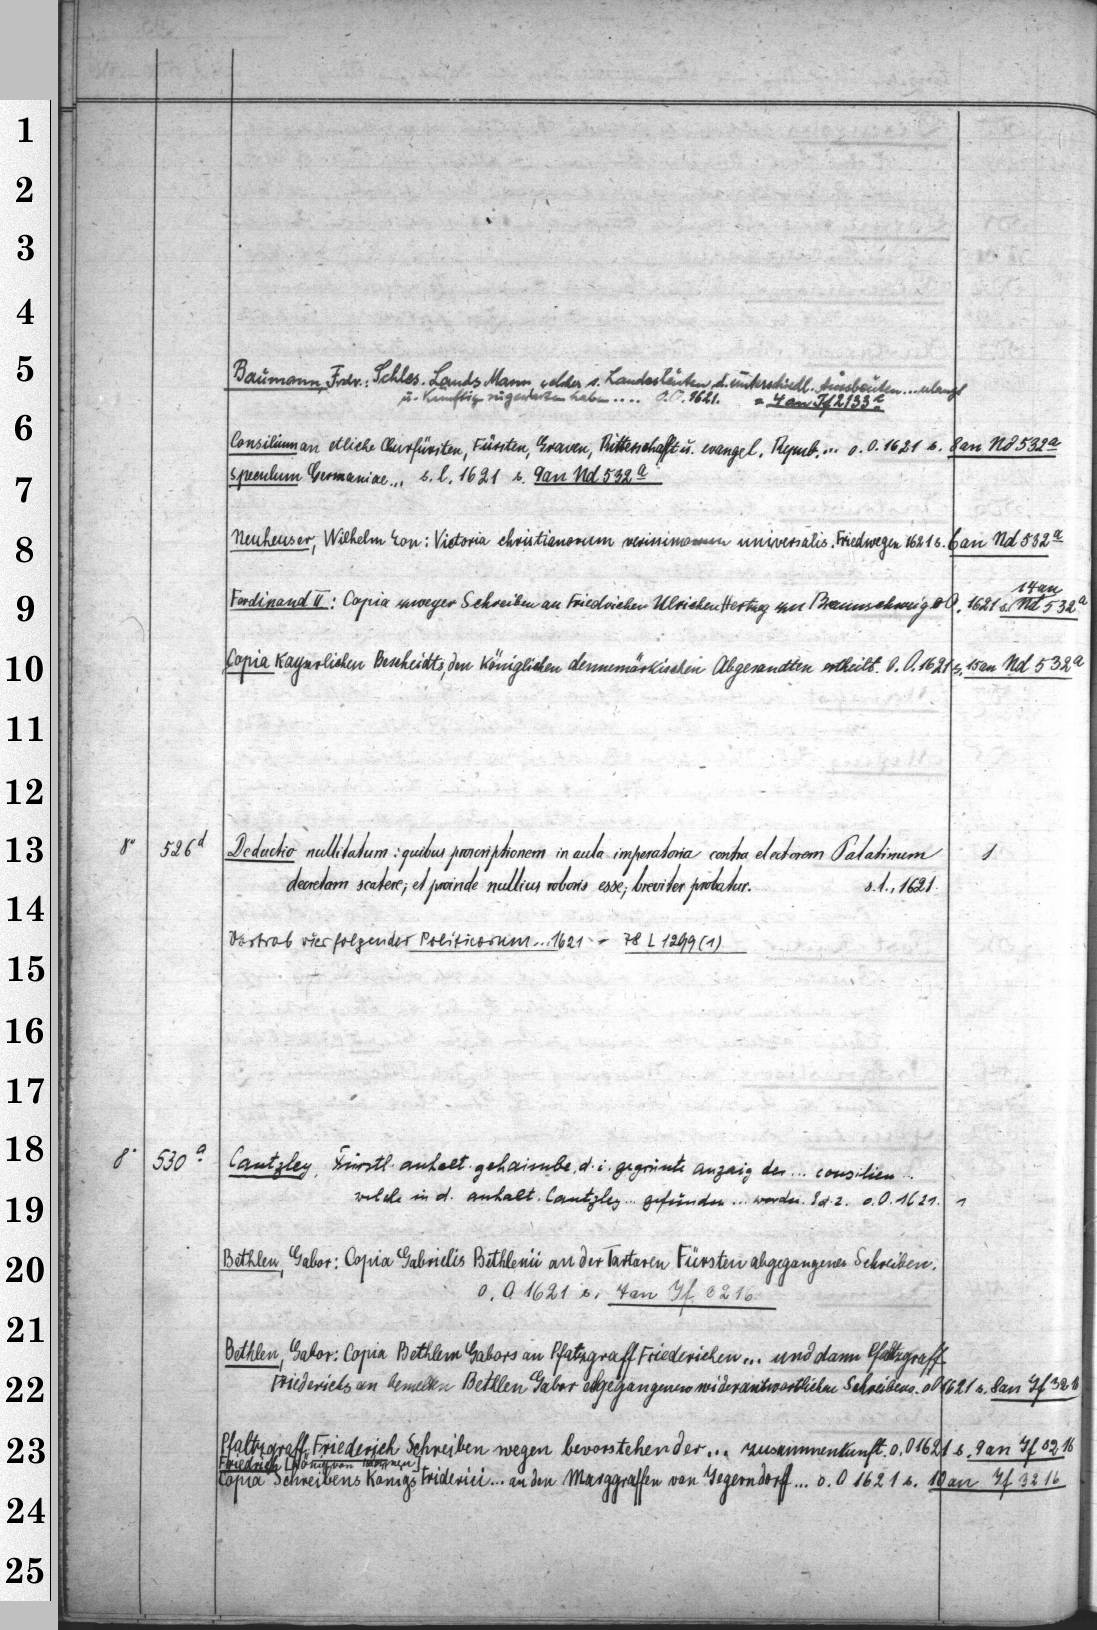 1
2
3
4
5
Baumann, Frdr.: Schles. Lands Mann, welcher s. Landesleuten d. unterschiedl. Aussbeuten... erlangt
u. Künftig zugewarten haben.... o.O. 1621. = 4 an Tf 2133 a
6
Consilium an etliche Churfürsten, Fürsten, Graven, Ritterschafft u. evangel. Repub.... o. O. 1621 s. 8 an Nd 532 a
7
Speculum Germaniae... s. l. 1621 s. 9 an Nd 532 a
8
Neuheuser, Wilhelm Eon: Victoria christianorum verissimorum universalis. Friedwegen 1621 s. 6 an Nd 532 a
9
Ferdinand II: Copia zweyer Schreiben an Friedrichen Ulrichen Hertzog zu Braunschweig o O. 1621 s. 14 an Nd 532 a
10
Copia Kayserlichen Bescheidts, den Königlichen dennemärkischen Abgesandten ertheilt. O. O. 1621 s. 15 an Nd 532 a
11
12
13
8° 526 d Deductio nullitatum: quibus proscriptionem in aula imperatoria contra electorem Palatinum 1
decretam scatere; et proinde nullius roboris esse; breviter probatur. s. l., 1621.
14
Vortrab vier folgender Politicorum... 1621 - 78 L 1299 (1)
15
16
17
18
8° 530 a Cantzley, Fürstl. anhalt. gehaimbe, d. i. gegrünte anzaig der ... consilien ..
19
welche in d. anhalt. Cantzley ... gefunden ... worden. Ed. 2. o. O. 1621. 1
20
Bethlen, Gabor: Copia Gabrielis Bethlenii an der Tartaren Fürsten abgegangener Schreiben.
o. O 1621 s. 7 an Jf 3216
21
Bethlen, Gabor: Copia Bethlem Gabors an Pfatzgraff Friederichen... und dann Pfaltzgraff
22
Friederichs an Bethlen Gabor abgegangenen widerantwortlichen Schreibens. o O 1621 s. 8 an Jf 3216
23
Pfaltzgraff Friederich Schreiben wegen bevorstehender... zusammenkunft. o. O 1621 s. 9 an Jf 3216
Friedrich [König von Böhmen]
Copia Schreibens Königs Friderici... an den Marggraffen von Jegerndorff... o. O 1621 s. 10 an Jf 3216
24
25